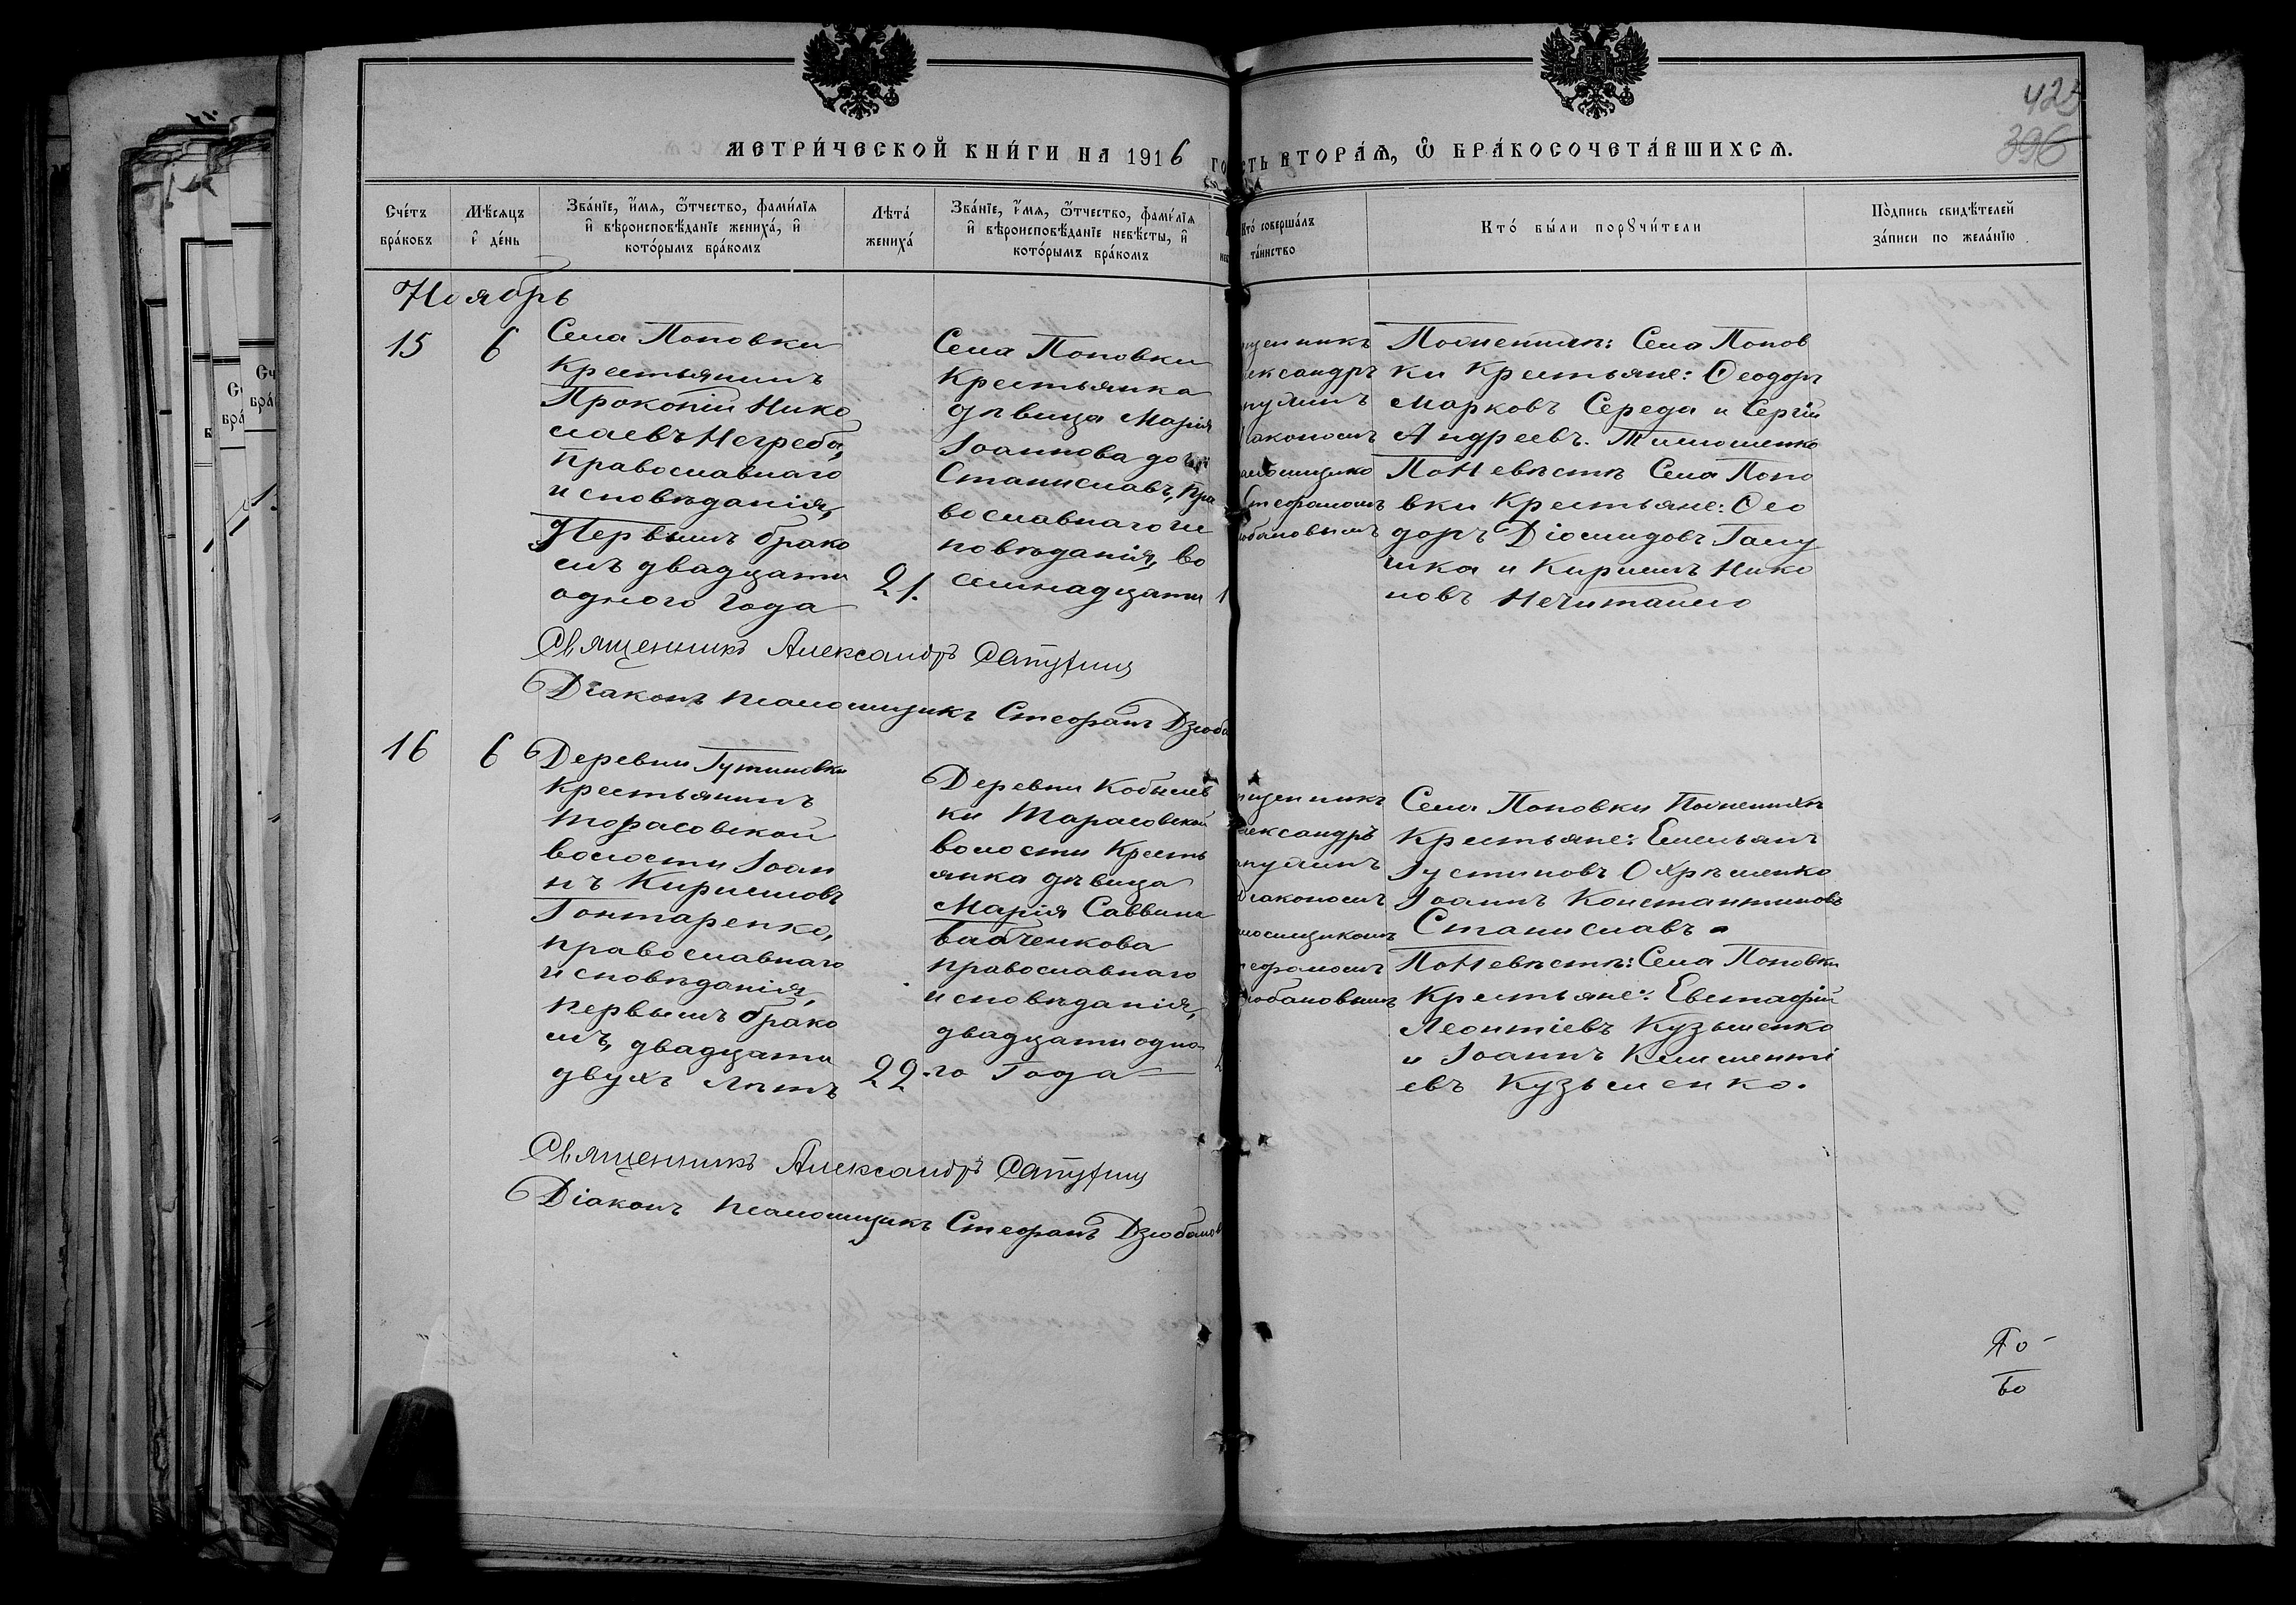 425
396
МЕТРИ́ЧЕСКОЙ КНИ́ГИ НА 1916 ГО
СТЬ ВТОРА́Ѧ, Ѡ҆ БРА́КОСОЧЕТА́ВШИХСѦ.
Сче́тъ бра́ковъ
Мѣ́сяцъ и҆ де́нь
Зва́нїе, и҆́мѧ, ѻ҆́тчество, фами́лїѧ
и҆ вѣроисповѣ́данїе жениха́, и҆
кото́рымъ бра́комъ
Лѣта́ жениха́
Зва́нїе, и҆́мѧ, ѻ҆́тчество, фами́лїѧ
и҆ вѣроисповѣ́данїе невѣ́сты, и҆
кото́рымъ бра́комъ
Кто́ соверша́лъ
та́инство
Кто́ бы́ли порꙋчи́тели
По́дпись свидѣ́телей
за́писи по жела́нїю
Ноябрь
15
6
Села Поповки
Крестьянинъ
Прокопій Нико
лаевъ Негреба,
православнаго
исповѣданія,
Первымъ брако
мъ двадцати
одного Года
21.
Села Поповки
Крестьянка
дѣвица Марія
Іоаннова дочь
Станиславъ, пра
вославнаго ис
повѣданія, во
семнадцати
щенникъ
ександръ
пулинъ
іакономъ
аломщико
Стефаномъ
юбановымъ
По женихѣ: Села Попов
ки Крестьяне: Ѳеодоръ
Марковъ Середа и Сергій
Андреевъ. Тимошенко
По Невѣстѣ Села Попо
вки Крестьяне: Ѳео
доръ Діомидовъ Галу
шка и Кириллъ Нико
новъ Нечитайло
Священникъ Александръ Сапулинъ
Діаконъ псаломщикъ Стефанъ Дзюба
16
6
Деревни Гутиновки
Крестьянинъ
Тарасовской
волости Іоан
нъ Кирилловъ
Гонтаренко,
православнаго
исповѣданія,
первымъ брако
мъ, двадцати
двухъ лѣтъ
22
Деревни Кобылев
ки Тарасовской
волости Кресть
янка дѣвица
Марія Саввина
Бабченкова
православнаго
исповѣданія,
двадцати одно
го Года
щенникъ
лександръ
апулинъ
Діакономъ
ломщикомъ
тефаномъ
юбановымъ
Села Поповки По женихѣ
Крестьяне: Емельянъ
Іустиновъ Охрѣменко
Іоаннъ Константиновъ
Станиславъ
По Невѣстѣ: Села Поповки
Крестьяне: Евстафій
Леонтіевъ Кузьменко
и Іоаннъ Климентi
евъ Кузьменко.
Священникъ Александръ Сапулинъ
Діаконъ псаломщикъ Стефанъ Дзюбанов